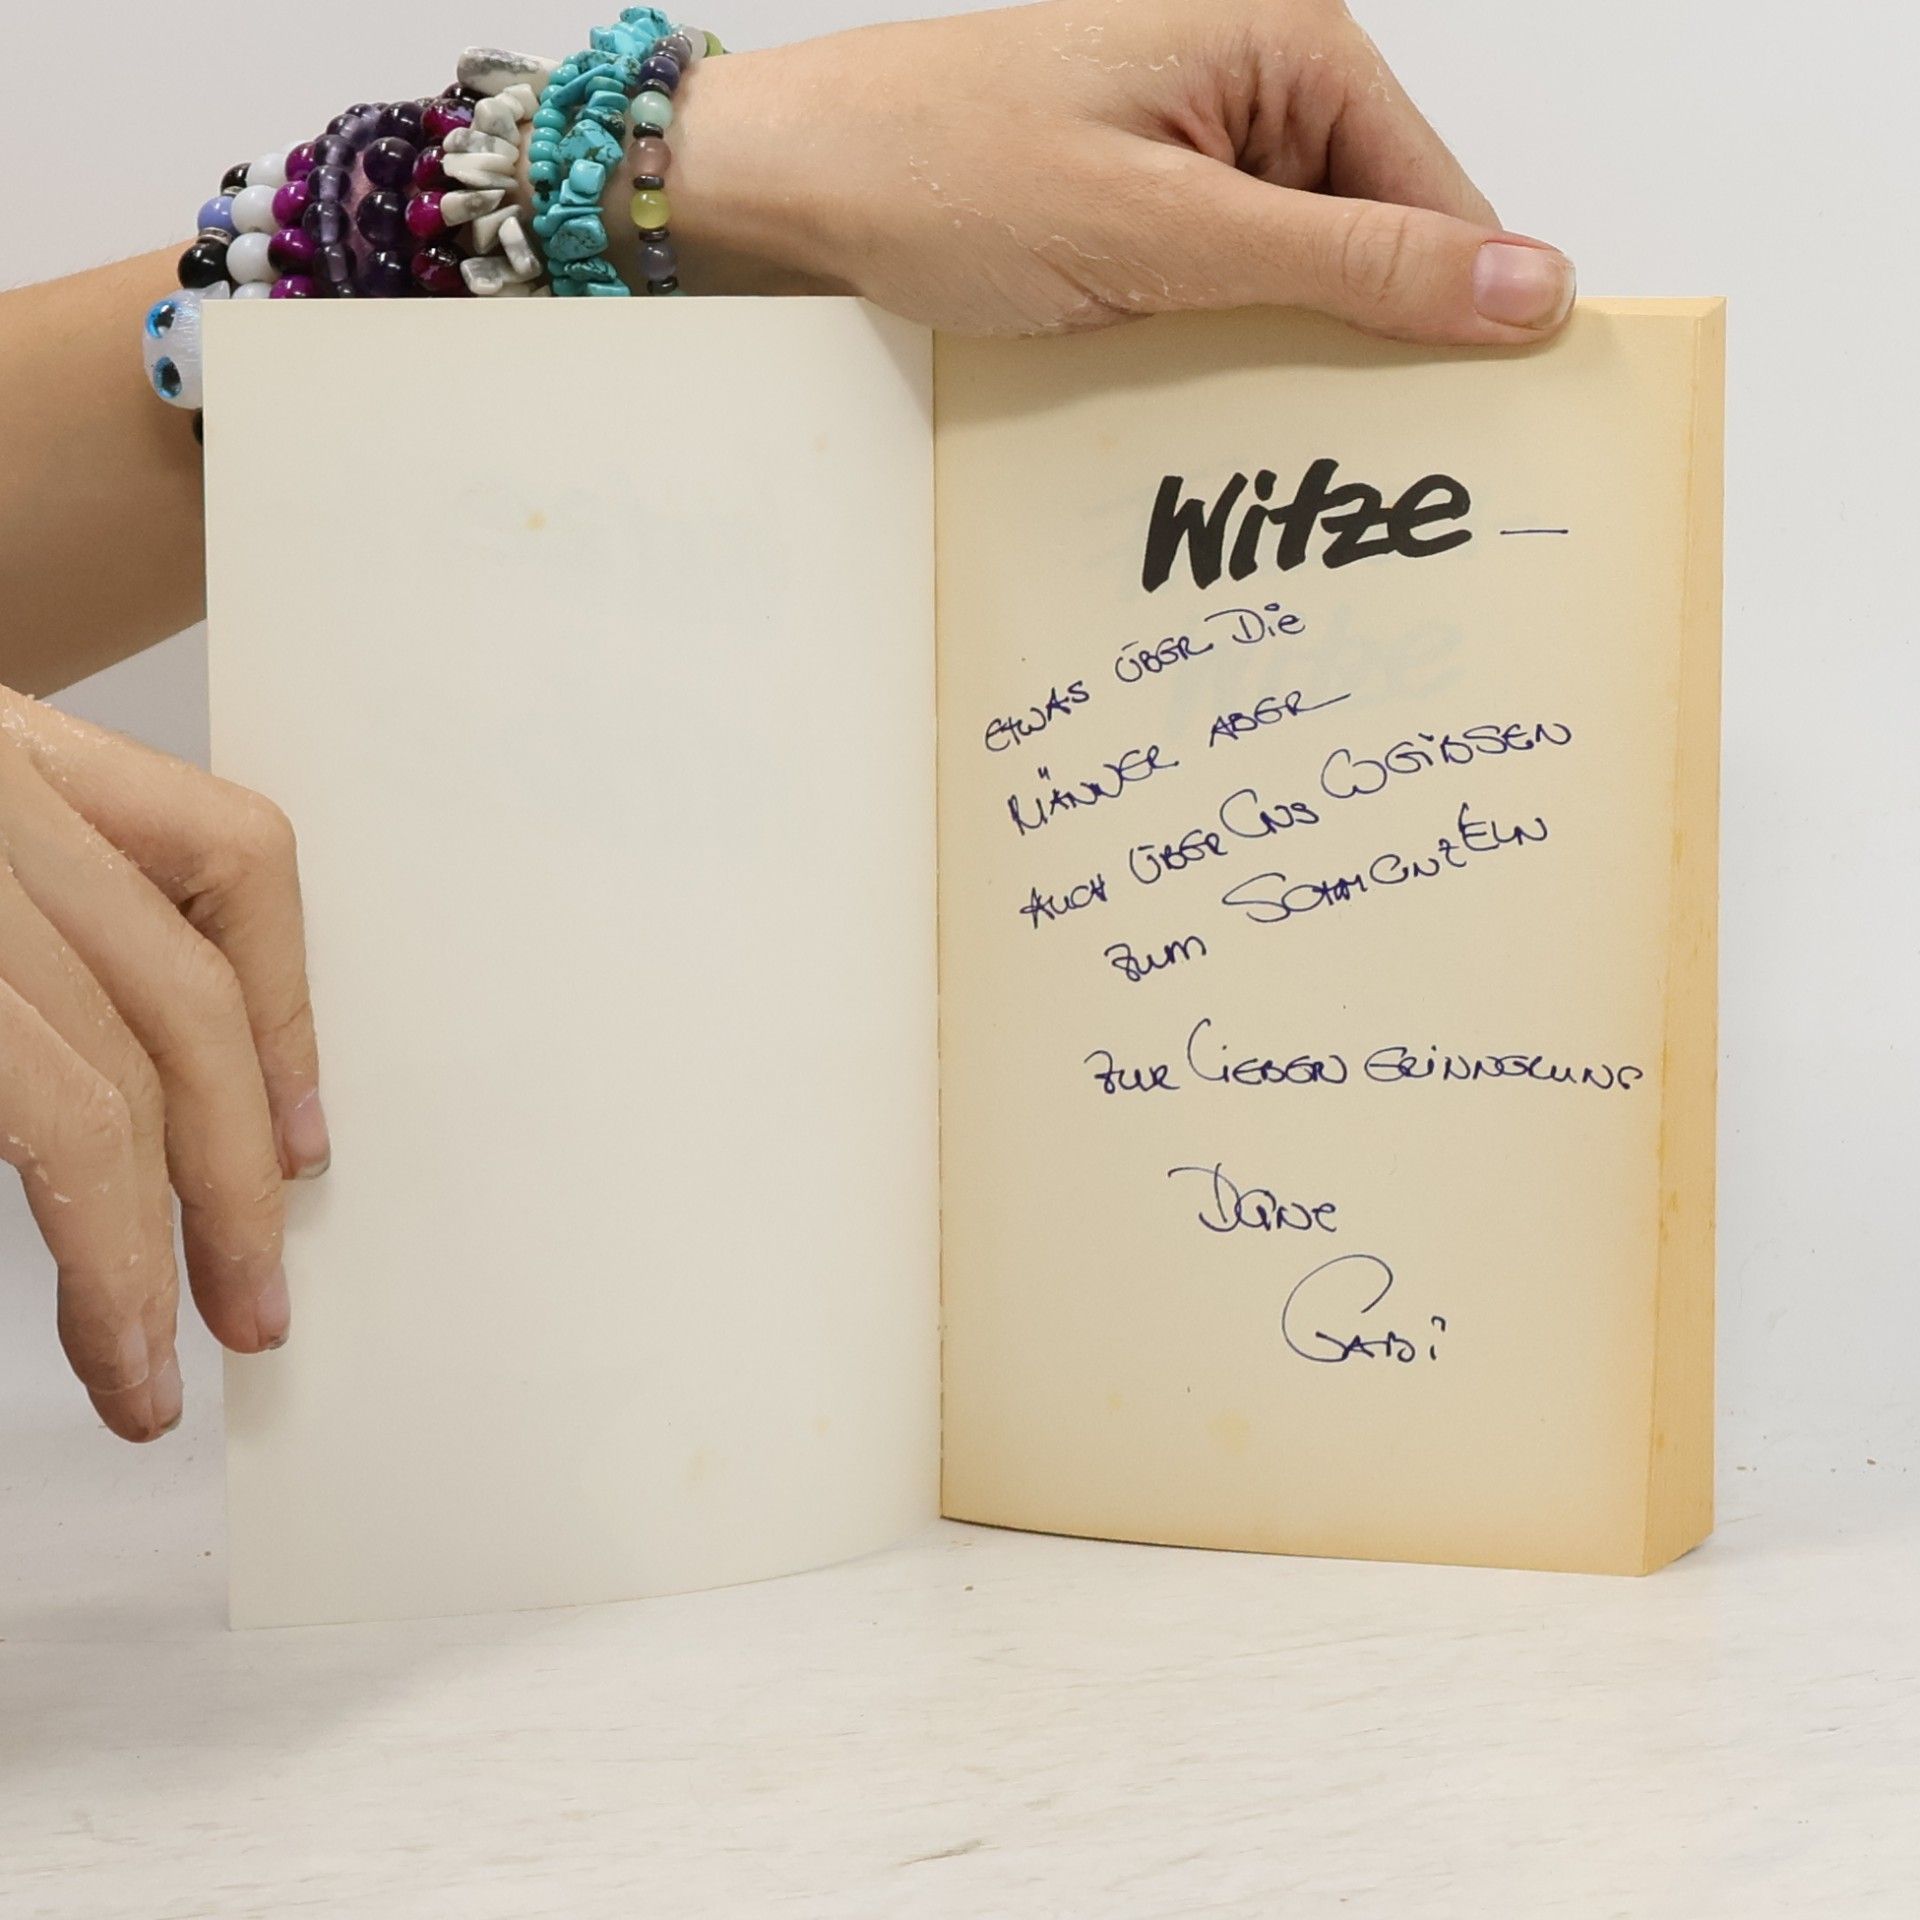 Witze —
ETWAS ÜBER Die
MÄNNER ABER
AUCH ÜBER UNS WEIBSEN
ZUM SCHMUNZELN
ZUR LIEBEN ERINNERUNG
DEINE
GABI